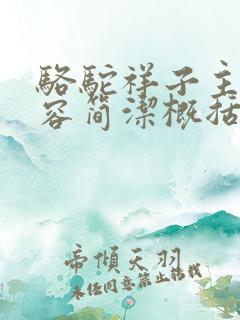 駱駝祥子主
容简潔概括
帝傾天羽
未经同意禁止转载